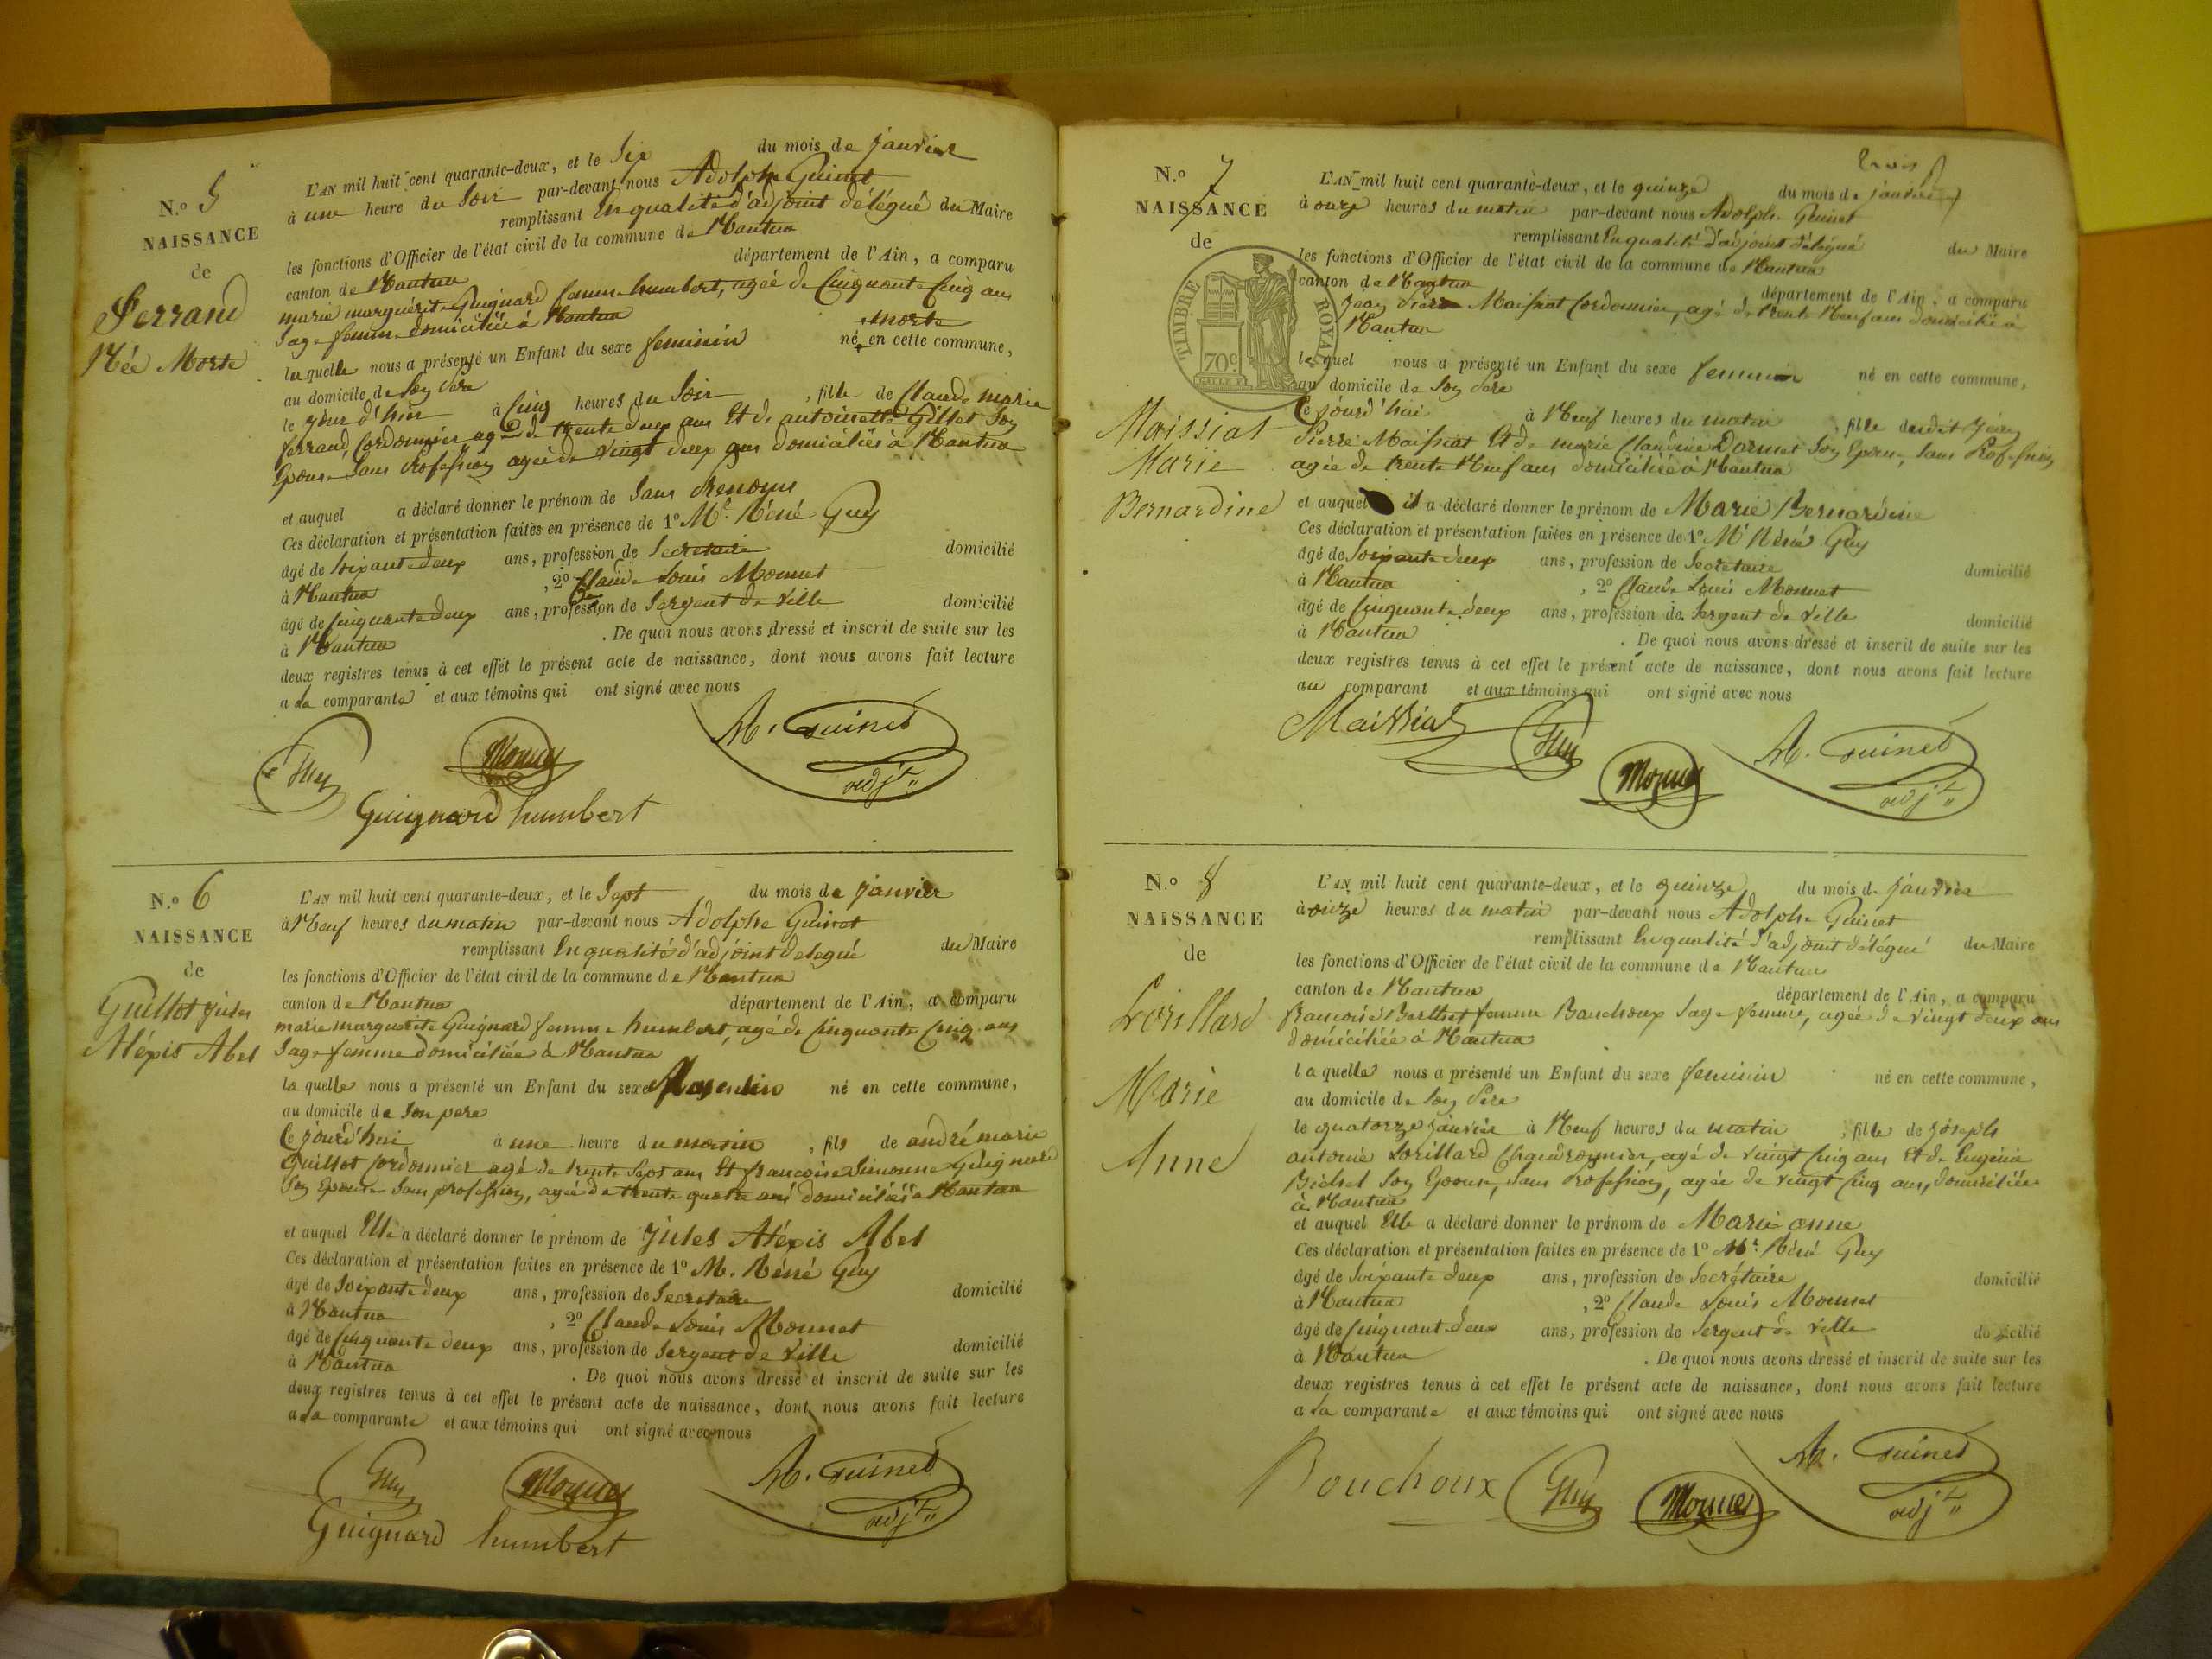 N.o 5
NAISSANCE
de
Ferrand
Née Morte
L'AN mil huit cent quarante-deux, et le Six du mois de janvier
à une heure du Soir par-devant nous Adolphe Guinet
remplissant En qualité d'adjoint délégué du Maire
les fonctions d'Officier de l'état civil de la commune de Nantua
canton de Nantua département de l'Ain, a comparu
marie marguerite Guignard femme humbert, agée de Cinquante Cinq ans
Sage femme domiciliée à Nantua
morte
la quelle nous a présenté un Enfant du sexe feminin né en cette commune,
au domicile de Son Père
le jour d'hier à Cinq heures du Soir , fille de Claude marie
ferrand, Cordonnier agé de trente deux ans Et de antoinette Gillet Son
Epouse Sans Profession agée de Vingt deux ans domiciliés à Nantua
et auquel a déclaré donner le prénom de Sans Prenoms
Ces déclaration et présentation faites en présence de 1o Mr. Réné Guy
âgé de Soixante deux ans, profession de Secretaire domicilié
à Nantua , 2o Claude Louis Monnet
âgé de Cinquante deux ans, profession de Sergent de Ville domicilié
à Nantua . De quoi nous avons dressé et inscrit de suite sur les
deux registres tenus à cet effet le présent acte de naissance, dont nous avons fait lecture
a la comparante et aux témoins qui ont signé avec nous
Guy Monnet A. Guinet
adjt
Guignard humbert
N.o 6
NAISSANCE
de
Guillot Jules
Aléxis Abel
L'AN mil huit cent quarante-deux, et le Sept du mois de janvier
à Neuf heures du matin par-devant nous Adolphe Guinet
remplissant En qualité d'adjoint delegué du Maire
les fonctions d'Officier de l'état civil de la commune de Nantua
canton de Nantua département de l'Ain, a comparu
marie marguerite Guignard femme humbert, agé de Cinquante Cinq ans
Sage femme domiciliée à Nantua
la quelle nous a présenté un Enfant du sexe Masculin né en cette commune,
au domicile de Son pere
Ce jourd'hui à une heure du matin , fils de andré marie
Guillot Cordonnier agé de trente Sept ans Et françoise Simonne Guignard
Son Epouse Sans profession, agée de trente quatre ans domiciliés à Nantua
et auquel Elle a déclaré donner le prénom de Jules Aléxis Abel
Ces déclaration et présentation faites en présence de 1o M. Réné Guy
âgé de Soixante deux ans, profession de Secretaire domicilié
à Nantua , 2o Claude Louis Monnet
âgé de Cinquante deux ans, profession de Sergent de Ville domicilié
à Nantua . De quoi nous avons dressé et inscrit de suite sur les
deux registres tenus à cet effet le présent acte de naissance, dont nous avons fait lecture
a la comparante et aux témoins qui ont signé avec nous
Guy Monnet A. Guinet
adjt
Guignard humbert
trois
N.o 7
NAISSANCE
de
TIMBRE ROYAL
70c
Maissiat
Marie
Bernardine
L'AN mil huit cent quarante-deux, et le quinze du mois de janvier
à onze heures du matin par-devant nous Adolphe Guinet
remplissant En qualité d'adjoint délégué du Maire
les fonctions d'Officier de l'état civil de la commune de Nantua
canton de Nantua département de l'Ain, a comparu
Jean Pierre Maissiat Cordonnier, agé de trente Neuf ans domicilié à
Nantua
le quel nous a présenté un Enfant du sexe feminin né en cette commune,
au domicile de Son Père
Ce jourd'hui à Neuf heures du matin , fille dudit Jean
Pierre Maissiat Et de marie Claudine Dormet Son Epouse, Sans Profession
agée de trente Neuf ans domiciliée à Nantua
et auquel il a déclaré donner le prénom de Marie Bernardine
Ces déclaration et présentation faites en présence de 1o Mr Réné Guy
âgé de Soixante deux ans, profession de Secretaire domicilié
à Nantua , 2o Claude Louis Monnet
âgé de Cinquante deux ans, profession de Sergent de Ville domicilié
à Nantua . De quoi nous avons dressé et inscrit de suite sur les
deux registres tenus à cet effet le présent acte de naissance, dont nous avons fait lecture
au comparant et aux témoins qui ont signé avec nous
Maissiat Guy Monnet A. Guinet
adjt
N.o 8
NAISSANCE
de
Lorillard
Marie
Anne
L'AN mil huit cent quarante-deux, et le quinze du mois de janvier
à onze heures du matin par-devant nous Adolphe Guinet
remplissant En qualité d'adjoint délégué du Maire
les fonctions d'Officier de l'état civil de la commune de Nantua
canton de Nantua département de l'Ain, a comparu
françoise Berthet femme Bouchoux Sage femme, agée de Vingt deux ans
domiciliée à Nantua
la quelle nous a présenté un Enfant du sexe feminin né en cette commune,
au domicile de Son Père
le quatorze janvier à Neuf heures du matin , fille de joseph
antoine Lorillard Chaudronnier, agé de Vingt Cinq ans Et de Eugénie
Bichet Son Epouse, Sans Profession, agée de Vingt Cinq ans, domiciliée
à Nantua
et auquel Elle a déclaré donner le prénom de Marie anne
Ces déclaration et présentation faites en présence de 1o Mr. Réné Guy
âgé de Soixante deux ans, profession de Secrétaire domicilié
à Nantua , 2o Claude Louis Monnet
âgé de Cinquant deux ans, profession de Sergent de Ville domicilié
à Nantua . De quoi nous avons dressé et inscrit de suite sur les
deux registres tenus à cet effet le présent acte de naissance, dont nous avons fait lecture
a la comparante et aux témoins qui ont signé avec nous
Bouchoux Guy Monnet A. Guinet
adjt